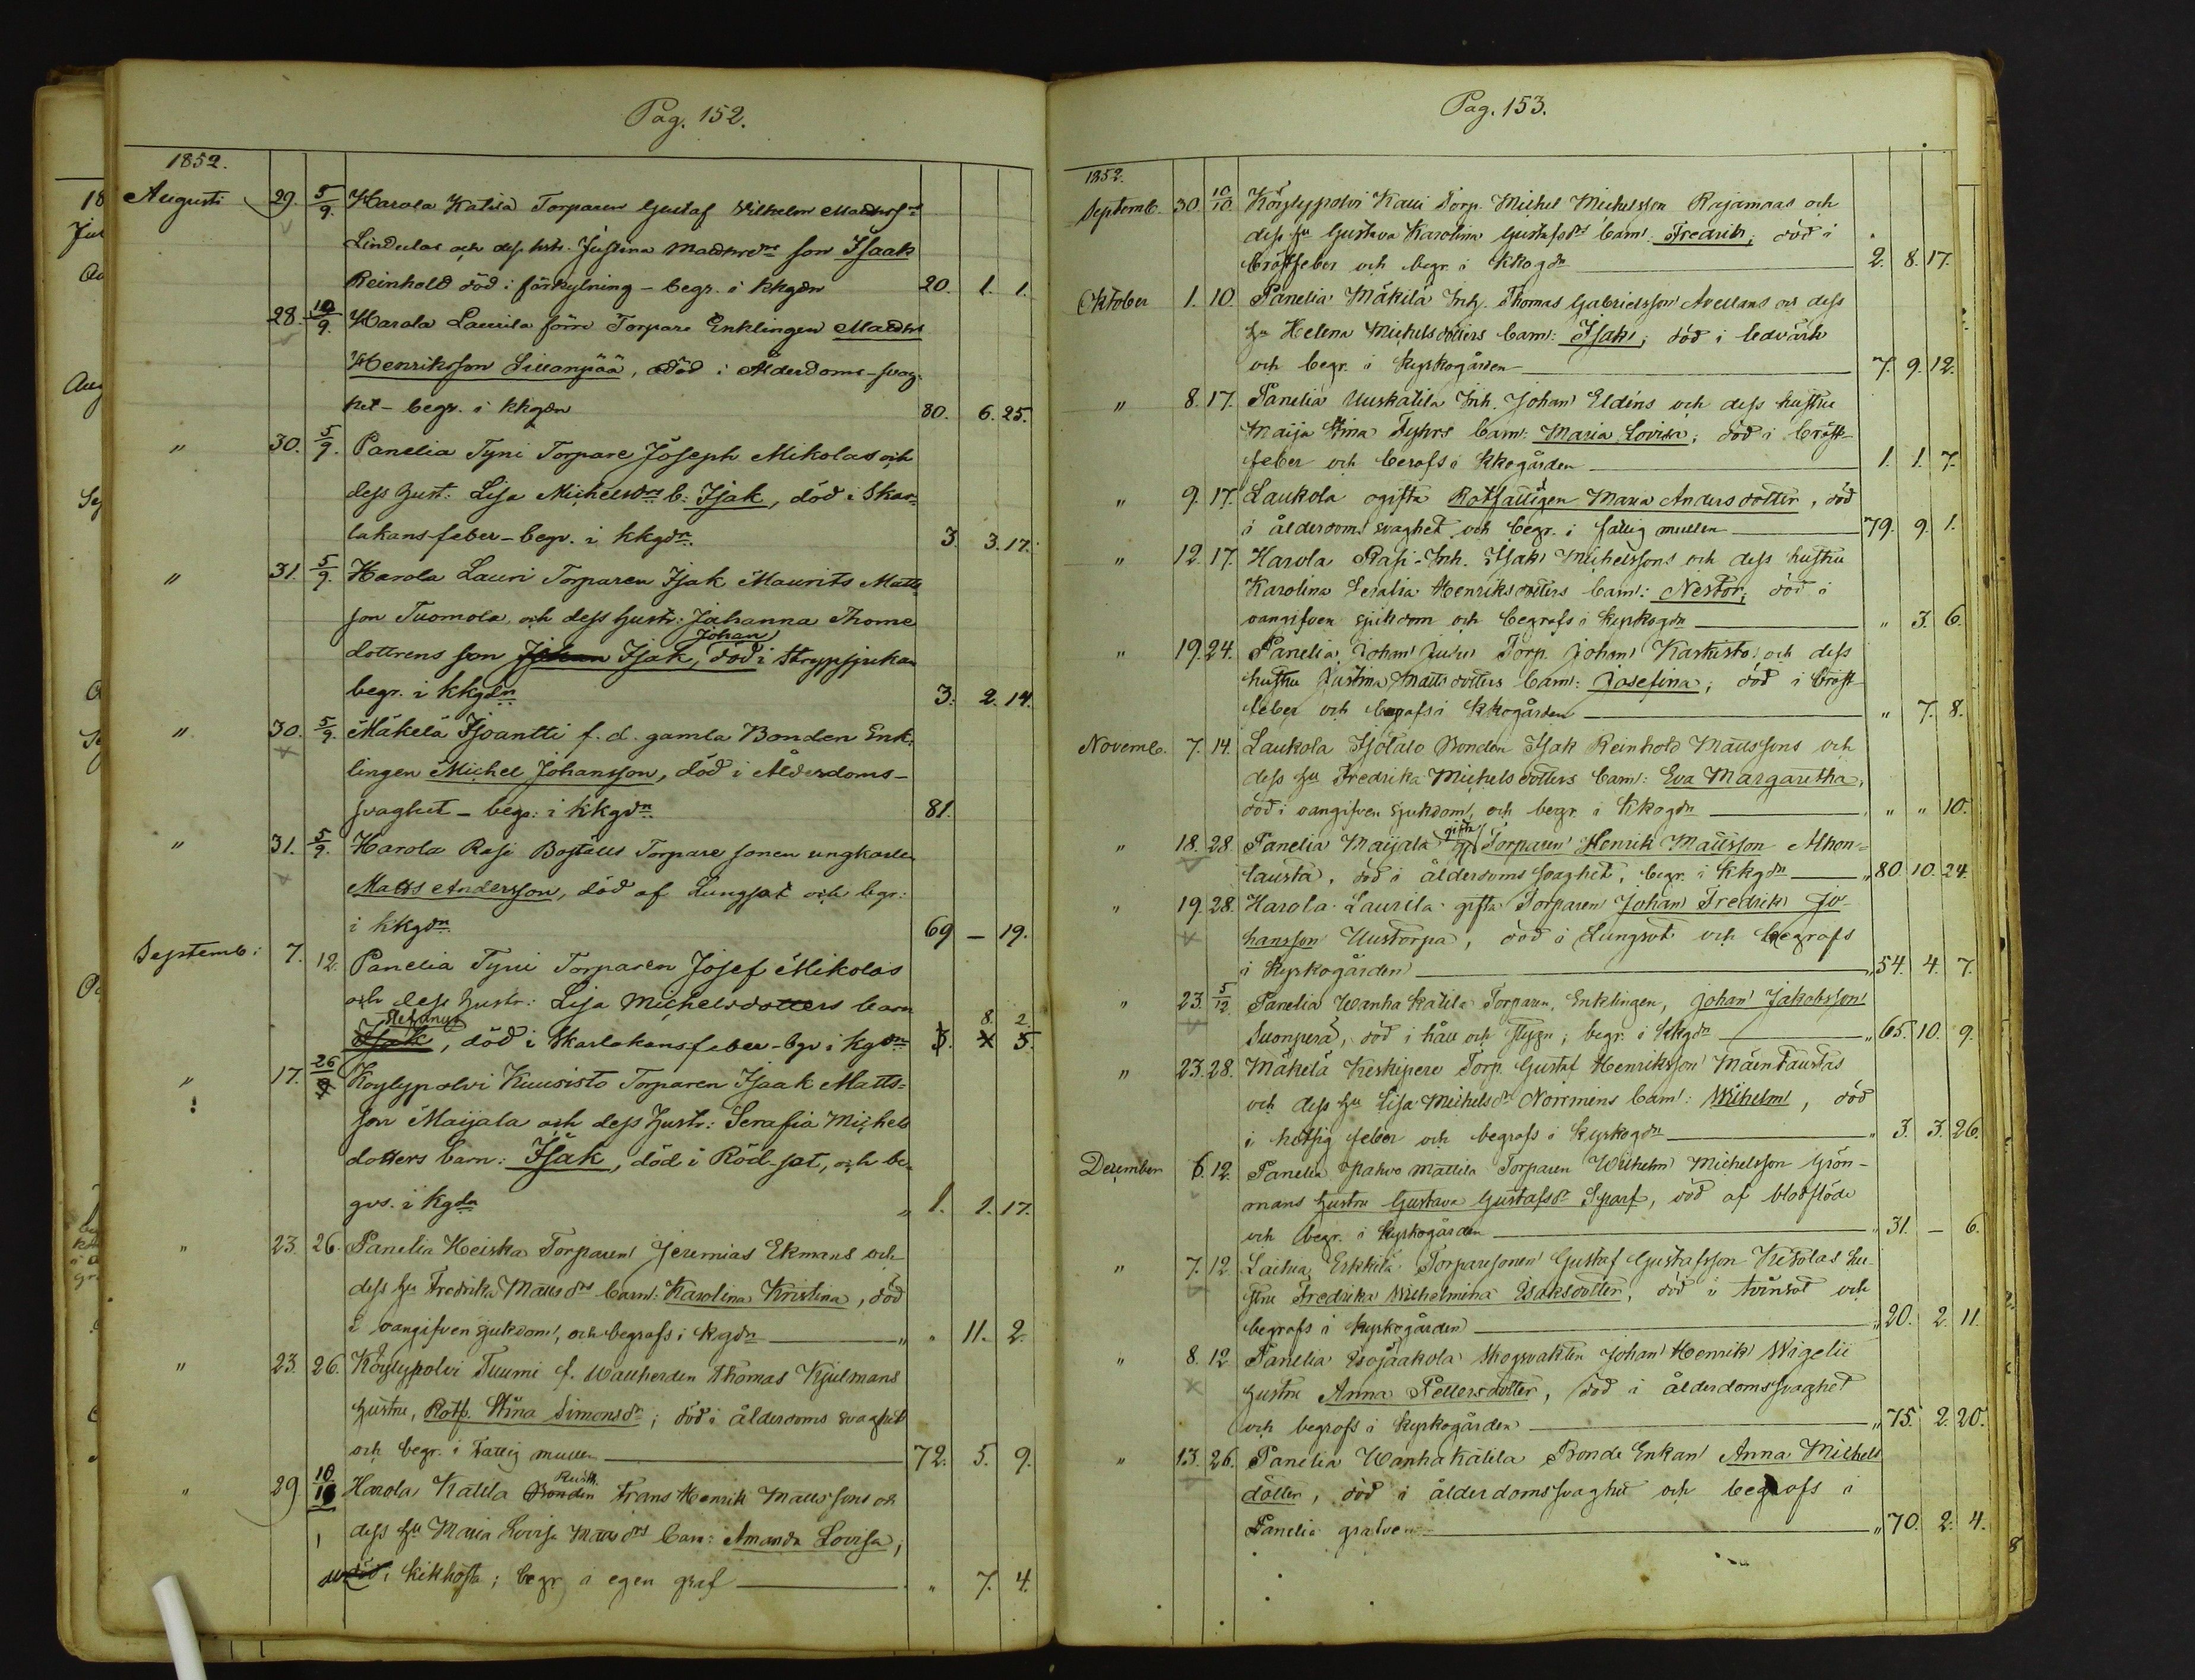 Pag. 152.
1852.
Augusti 29. 5/9. Harola Katila Torparen Gustaf Wilhelm
Lindulas och dess hstr. Justina son Isaak
Reinhold död i förkylning - begr. i kkgdn 20. 1. 1.
28. 10/9. Harola Laurila förre Torpare Enklingen
Henriksson Sillanpää, död i Ålderdoms-svag-
het - begr. i kkgdn 80. 6. 25.
" 30. 5/9. Panelia Tyni Torpare Joseph Mikolas och
dess hust: Lisa Michelsdrs b: Isak, död i Skar-
lakans-feber - begr. i kkgdn. 3. 3. 17.
" 31. 5/9. Harola Lauri Torparen Isak Maurits Matts
son Tuomola, och dess hustr: Johanna Thome
Johan
dottrens son Johan Isak, död i Strypsjukan
begr. i kkgdn 3. 2. 14.
" 30. 5/9. Mäkelä Isoantti f. d. gamla Bonden Enk-
lingen Michel Johansson, död i Ålderdoms-
svaghet - begr: i kkgdn 81.
" 31. 5/9. Harola Rasi Boställs Torpare sonen ungkarlen
Matts Andersson, död af Lungsot och begr:
i kkgdn 69 - 19.
Septemb: 7. 12. Panelia Tyni Torparen Josef Mikolas
och dess hustr: Lisa Michelsdotters barn
Stefanus 8. 2.
Isak, död i Skarlakansfeber - bgr i kgdn 3. 4 5.
" 17. 26/9 Köylypolvi Kuusisto Torparen Isaak Matts-
son Maijala och dess hustr: Serafia Michels
dotters barn: Isak, död i Röd-sot, och be-
gvs. i kgdn " 1. 1. 17.
" 23. 26. Panelia Heiska Torparen Jeremias Ekmans och
dess hu Fredrika Matts drs barn: Karolina Kristina, död
i oangifven sjukdom, och begrafs i kgdn " " 11. 2.
" 23. 26. Köylypolvi Tuumi f. Wallherden Thomas Kjulmans
hustru, Rotf. Stina Simonsdr; död i ålderdoms svaghet
och begr. i Fattig mullen 72. 5. 9.
Rusth.
" 29 10/10 Harola Katila Bonden Frans Henrik Mattssons och
dess hu Maria Lovisa Matts drs barn: Amanda Lovisa;
död i kikhosta; begr i egen graf " 7. 4.
Pag. 153.
1852.
Septemb. 30. 10/10. Köylypolvi Kaui Torp. Michel Michelsson Rajamaas och
dess hu Gustava Karolina Gustafsdrs barn: Fredrik; död i
bröstfeber och begr. i kkogdn 2. 8. 17.
Oktober 1. 10. Panelia Mäkilä Inh. Thomas Gabrielsson Avellans och dess
hu Helena Michelsdotters barn: Isak; död i ledvärk
och begr. i kyrkogården 7. 9. 12.
" 8. 17. Panelia Uuskatila Inh. Johan Eldéns och dess hustru
Maija Stina Fyhrs barn: Maria Lovisa; död i bröst-
feber och berafs i kkogården 1. 1. 7.
" 9. 17. Laukola ogifta Rotfattigen Maria Andersdotter, död
i ålderdoms svaghet och begr. i fattig mullen 79. 9. 1.
" 12. 17. Harola Rasi-Inh. Isak Michelssons och dess hustru
Karolina Henriksdotters barn: Nestor; död i
oangifven sjukdom och begrafs i kyrkogdn " 3. 6.
" 19. 24. Panelia Johan Torp. Johan Karhisto: och dess
hustru Justina Mattsdotters barn: Josefina; död i bröst-
feber och begrafs i kkogården " 7. 8.
Novemb. 7. 14. Laukola Isotalo Bonden Isak Reinhold Mattssons och
dess hu Fredrika Michelsdotters barn: Eva Margaretha,
död i oangifven sjukdom, och begr. i kkogdn " " 10.
gifta
" 18. 28. Panelia Maijala Torparen Henrik Mattsson Ahon-
tausta, död i ålderdoms svaghet, begr. i kkgdn " 80. 10. 24.
" 19. 28. Harola Laurila gifta Torparen Johan Fredrik Jo-
hansson Uustorpa, död i Lungsot och begrafs
i kyrkogården " 54. 4. 7.
" 23. 5/12. Panelia Wanha Katila Torparen, Enklingen, Johan Jakobsson
Suonperä, död i håll och styng; begr. i kkgdn " 65. 10. 9.
" 23. 28. Mäkelä Keskipere Torp. Gustaf Henriksson Mäentaustas
och dess hu Lisa Michelsdr Norrmens barn: Wilhelm, död
i hetsig feber och begrafs i kyrkogdn " 3. 3. 26.
December 6. 12. Panelia Pahvo Mattila Torparen Wilhelm Michelsson Grön-
mans hustru Gustava Gustafsdr Sparf, död af blodflöde
och begr. i kyrkogården " 31. - 6.
" 7. 12 Laihia Erkkilä Torparesonen Gustaf Gustafsson Ketolas hu-
stru Fredrika Wilhelmina Isaksdotter, död i tvinsot och
begrafs i kyrkogården " 20. 2. 11.
" 8. 12 Panelia Isojaakola Skogvakten Johan Henrik Wigelii
hustru Anna Pettersdotter, död i ålderdomssvaghet
och begrafs i kyrkogården " 75. 2. 20.
" 13. 26. Panelia Wanhakatila Bonde Enkan Anna Michels
dotter, död i ålderdomssvaghet och begrafs i
Panelia grafven " 70. 2. 4.